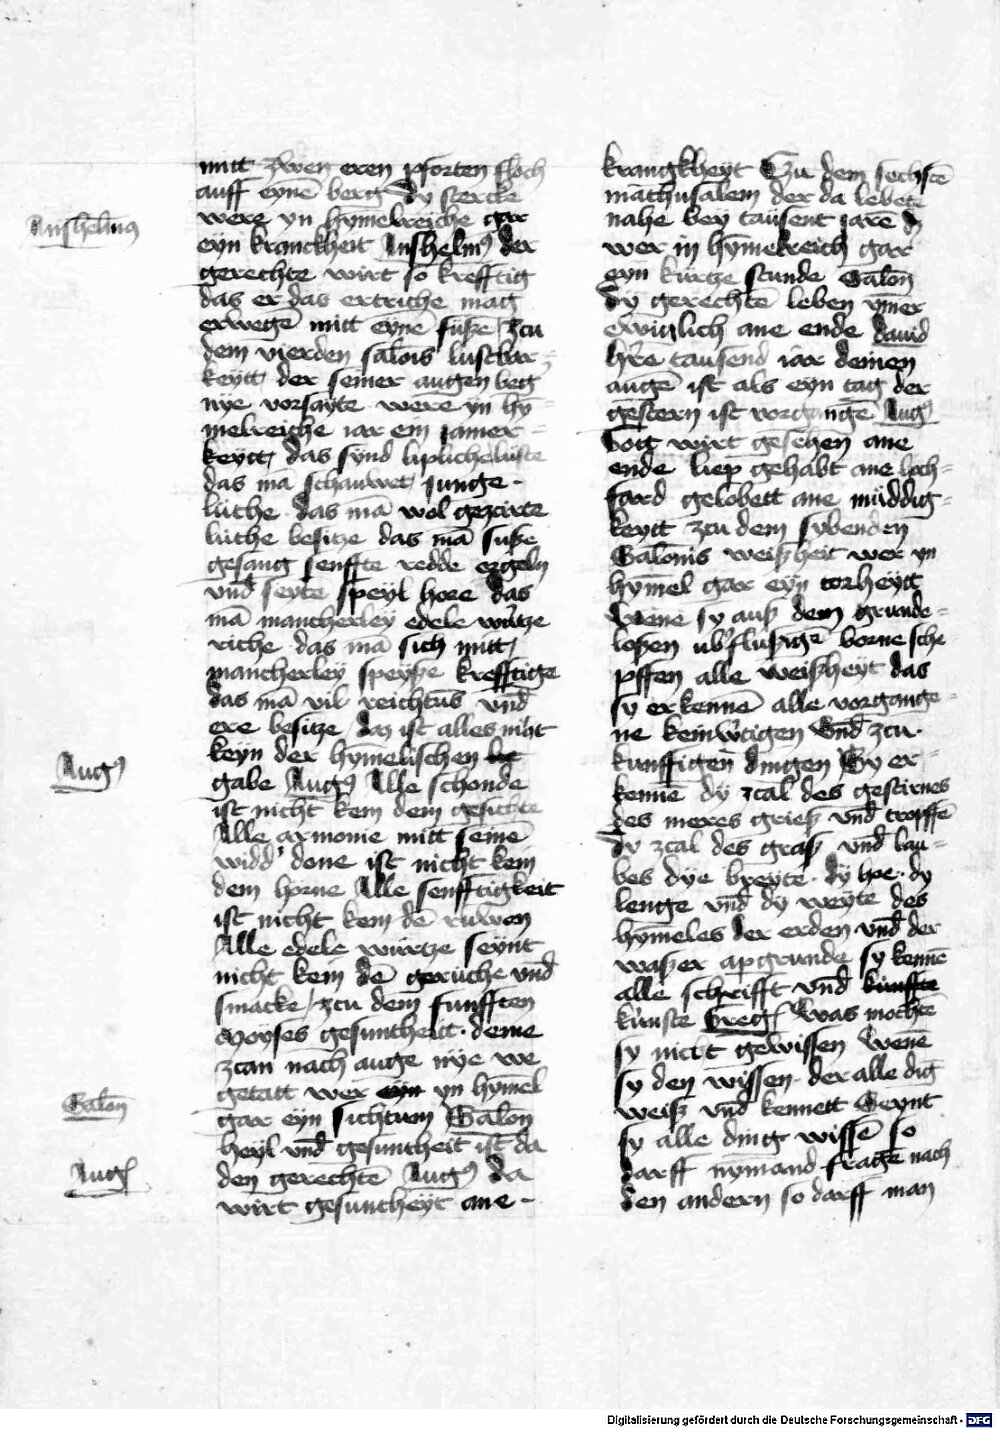 mitt zwen eren pforten floch
auff eynē berg Dy stercke
were yn hymelreiche gar
Anshelmus
eyn kranckheit Anshelmꝰ der
gerechte wirt so krefftig
das er das ertriche mag
erwegē mitt eynē fusze zcu
dem vierden salōis lustbar-
keytt der seiner augen beg
nye vorsayte were yn hy-
melreiche iar ein iamer-
keytt das synd lipliche luste
das mā schauwet junge
luthe das mā wol gezcirte
luthe besitze das mā susze
gesang senffte redde orgeln
vnd seyte speyl hore das
mā mancherley edele wurtze
riche das mā sich mitt
mancherley speysze krefftige
das mā vil reichtūs vnd
ere besitze daz ist alles nicht
keyn der hymelischen be
Augꝰ
gabe Augꝰ Alle schonde
ist nicht kem dem gesichte
Alle armonie mitt seinē
widd' done ist nicht kem
dem horne Alle senfftigkeit
ist nicht kem dē ruwen
Alle edele wurtze seynt
nicht kem dē geruche vnd
smacke / zcu dem funfften
Moyses gesuntheitt deme
zcan nach auge nye we
getatt wer eyn yn hymel
Salon̄
gar eyn sichtum Salon̄
heyl vnd gesuntheit ist da
den gerechtē Augꝰ Da
Augꝰ
wirt gesuntheyt ane -
krangkheyt Czu dem sechstē
mathusalem der da lebete
nahe bey tausent jare d
wer in hymelreich gar
eyn kurtze stunde Salon̄
Dy gerechtē leben ymer
ewiglich ane ende dauid
h're tausend iar deinen
augē ist als eyn tag der
gestern ist vorgangē Augꝰ
Gott wirt gesehen ane
ende liep gehabt ane hoch-
fard gelobett ane müddig-
keytt zcu dem sybenden
Salonis weiszheit wer yn
hymel gar eyn torheytt
Wene sy ausz dem grunde-
loszen ub'fluszigē borne sche-
pffen alle weiszheyt das
sy erkennē alle vorgange-
ne keinw'tigen Vnd zcu-
kunfftigen dingen Sy er-
kennē dy zcal des gestirnes
des meres griesz vnd tropffē
Dy zcal des grasz vnd lau-
bes dye breyte dy hoe dy
lenge vnd dy weyte des
hymeles der erden vnd der
waszer apgrunde sy kennē
alle schrifft vnd kunffte
kunste Greg' Was mochtē
sy nicht gewissen Wenē
sy den wissen der alle dīg
weisz vnd kennett Seynt
sy alle ding wissē so
darff nymand fragē nach
den andern so darff man
Digitalisierung gefördert durch die Deutsche Forschungsgemeinschaft - DFG